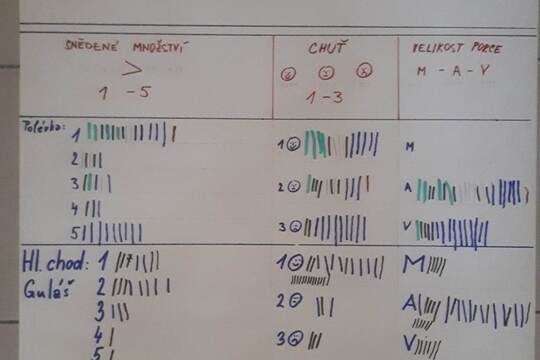 SNĚDENÉ MNOŽSTVÍ
>
1 - 5
CHUŤ
1 - 3
VELIKOST PORCE
M - A - V
Polévka:
1
2
3
4
5
1
2
3
M
A
V
Hl. chod:
Guláš
1
2
3
4
5
1
2
3
M
A
V